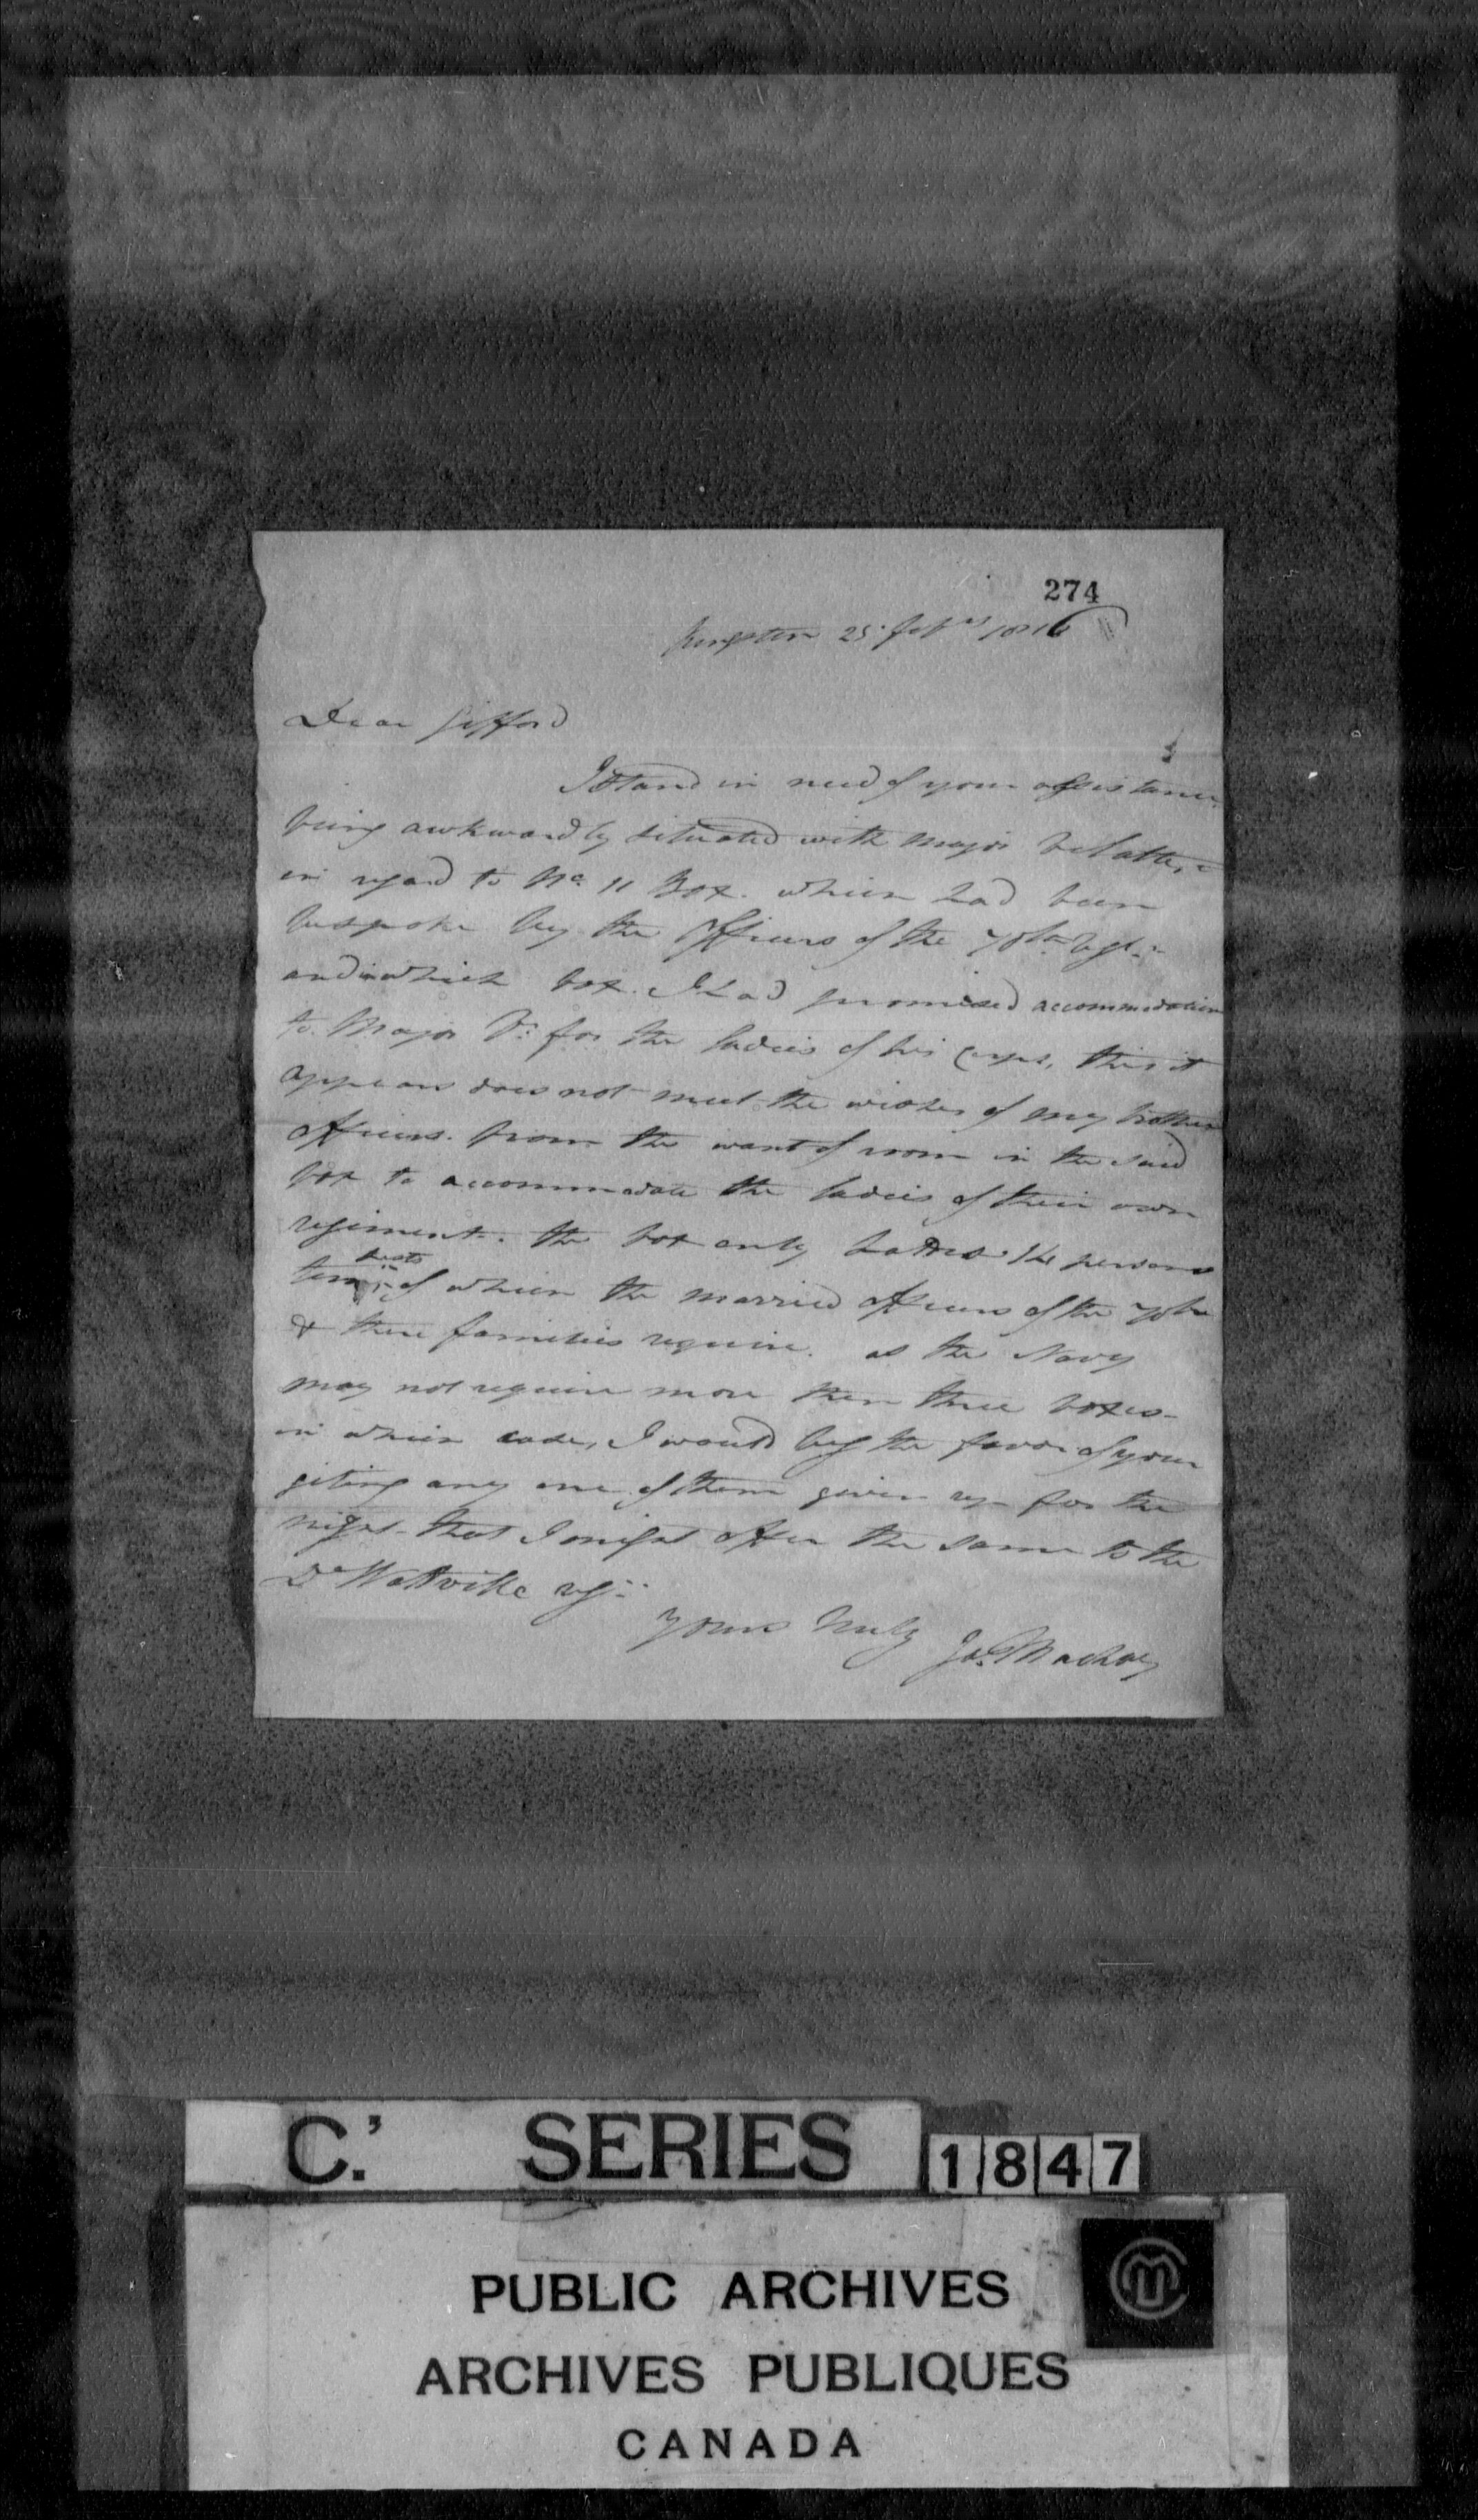 274
Kingston 25 Feby 1816
Dear Gifford
I Stand in need of your assistance
being awkwardly situated with Major
in regard to No. 11 Box. which had been
bespoke by the Officers of the 70th regt.
and in which box. I had promised accommodation
to Major for the ladies of his Corps, this it
appears does not meet the wishes of my brother
officers. from the want of room in the said
box to accommodate the ladies of their own
regiment. the box only the persons
ten seats of which the married officers of the 70th
& there families require. as the Navy
may not require more then three boxes -
in which case, I would beg the favor of your
geting any one of them given up for the
night - that I might offer the same to the
De Wattville regt.
Yours truly Jas. Mackay
C.' SERIES 1847
PUBLIC ARCHIVES
ARCHIVES PUBLIQUES
CANADA